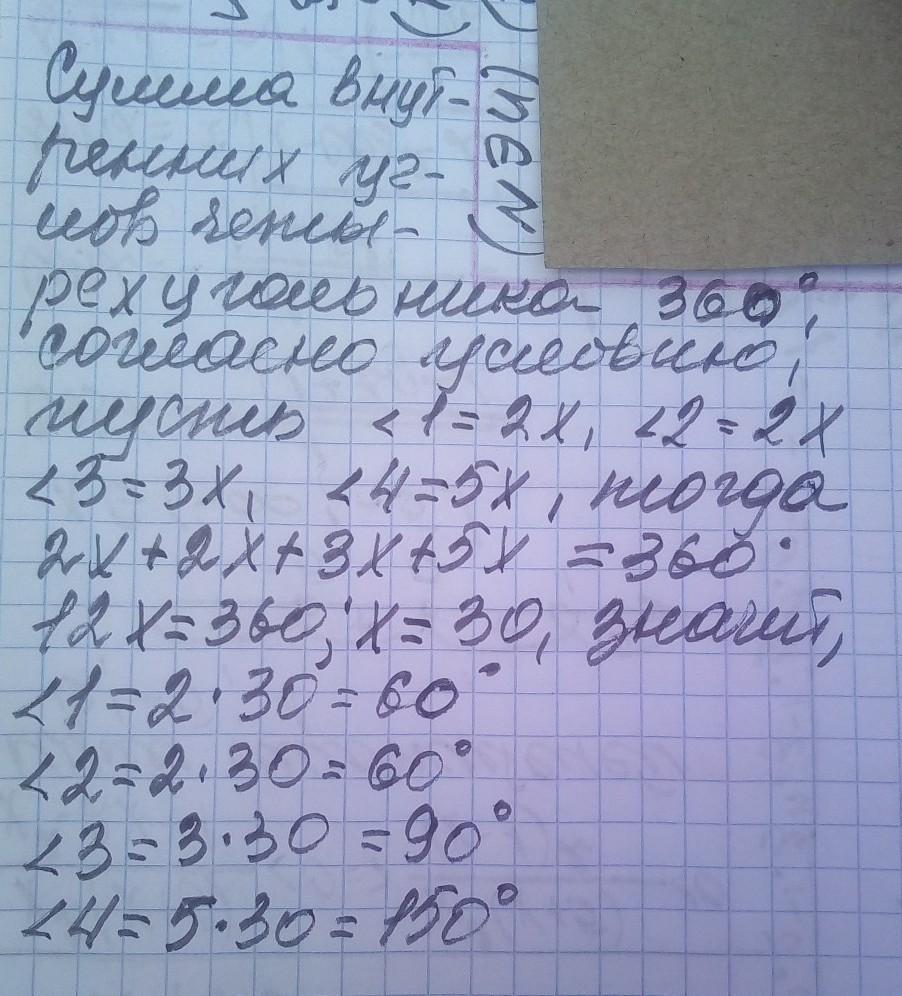 Сумма внут-
ренних уг-
лов четы-
рехугольника 360°,
согласно условию,
пусть <1=2x, <2=2x
<3=3x, <4=5x, тогда
2x+2x+3x+5x=360°
12x=360; x=30, значит,
<1=2·30=60°
<2=2·30=60°
<3=3·30=90°
<4=5·30=150°